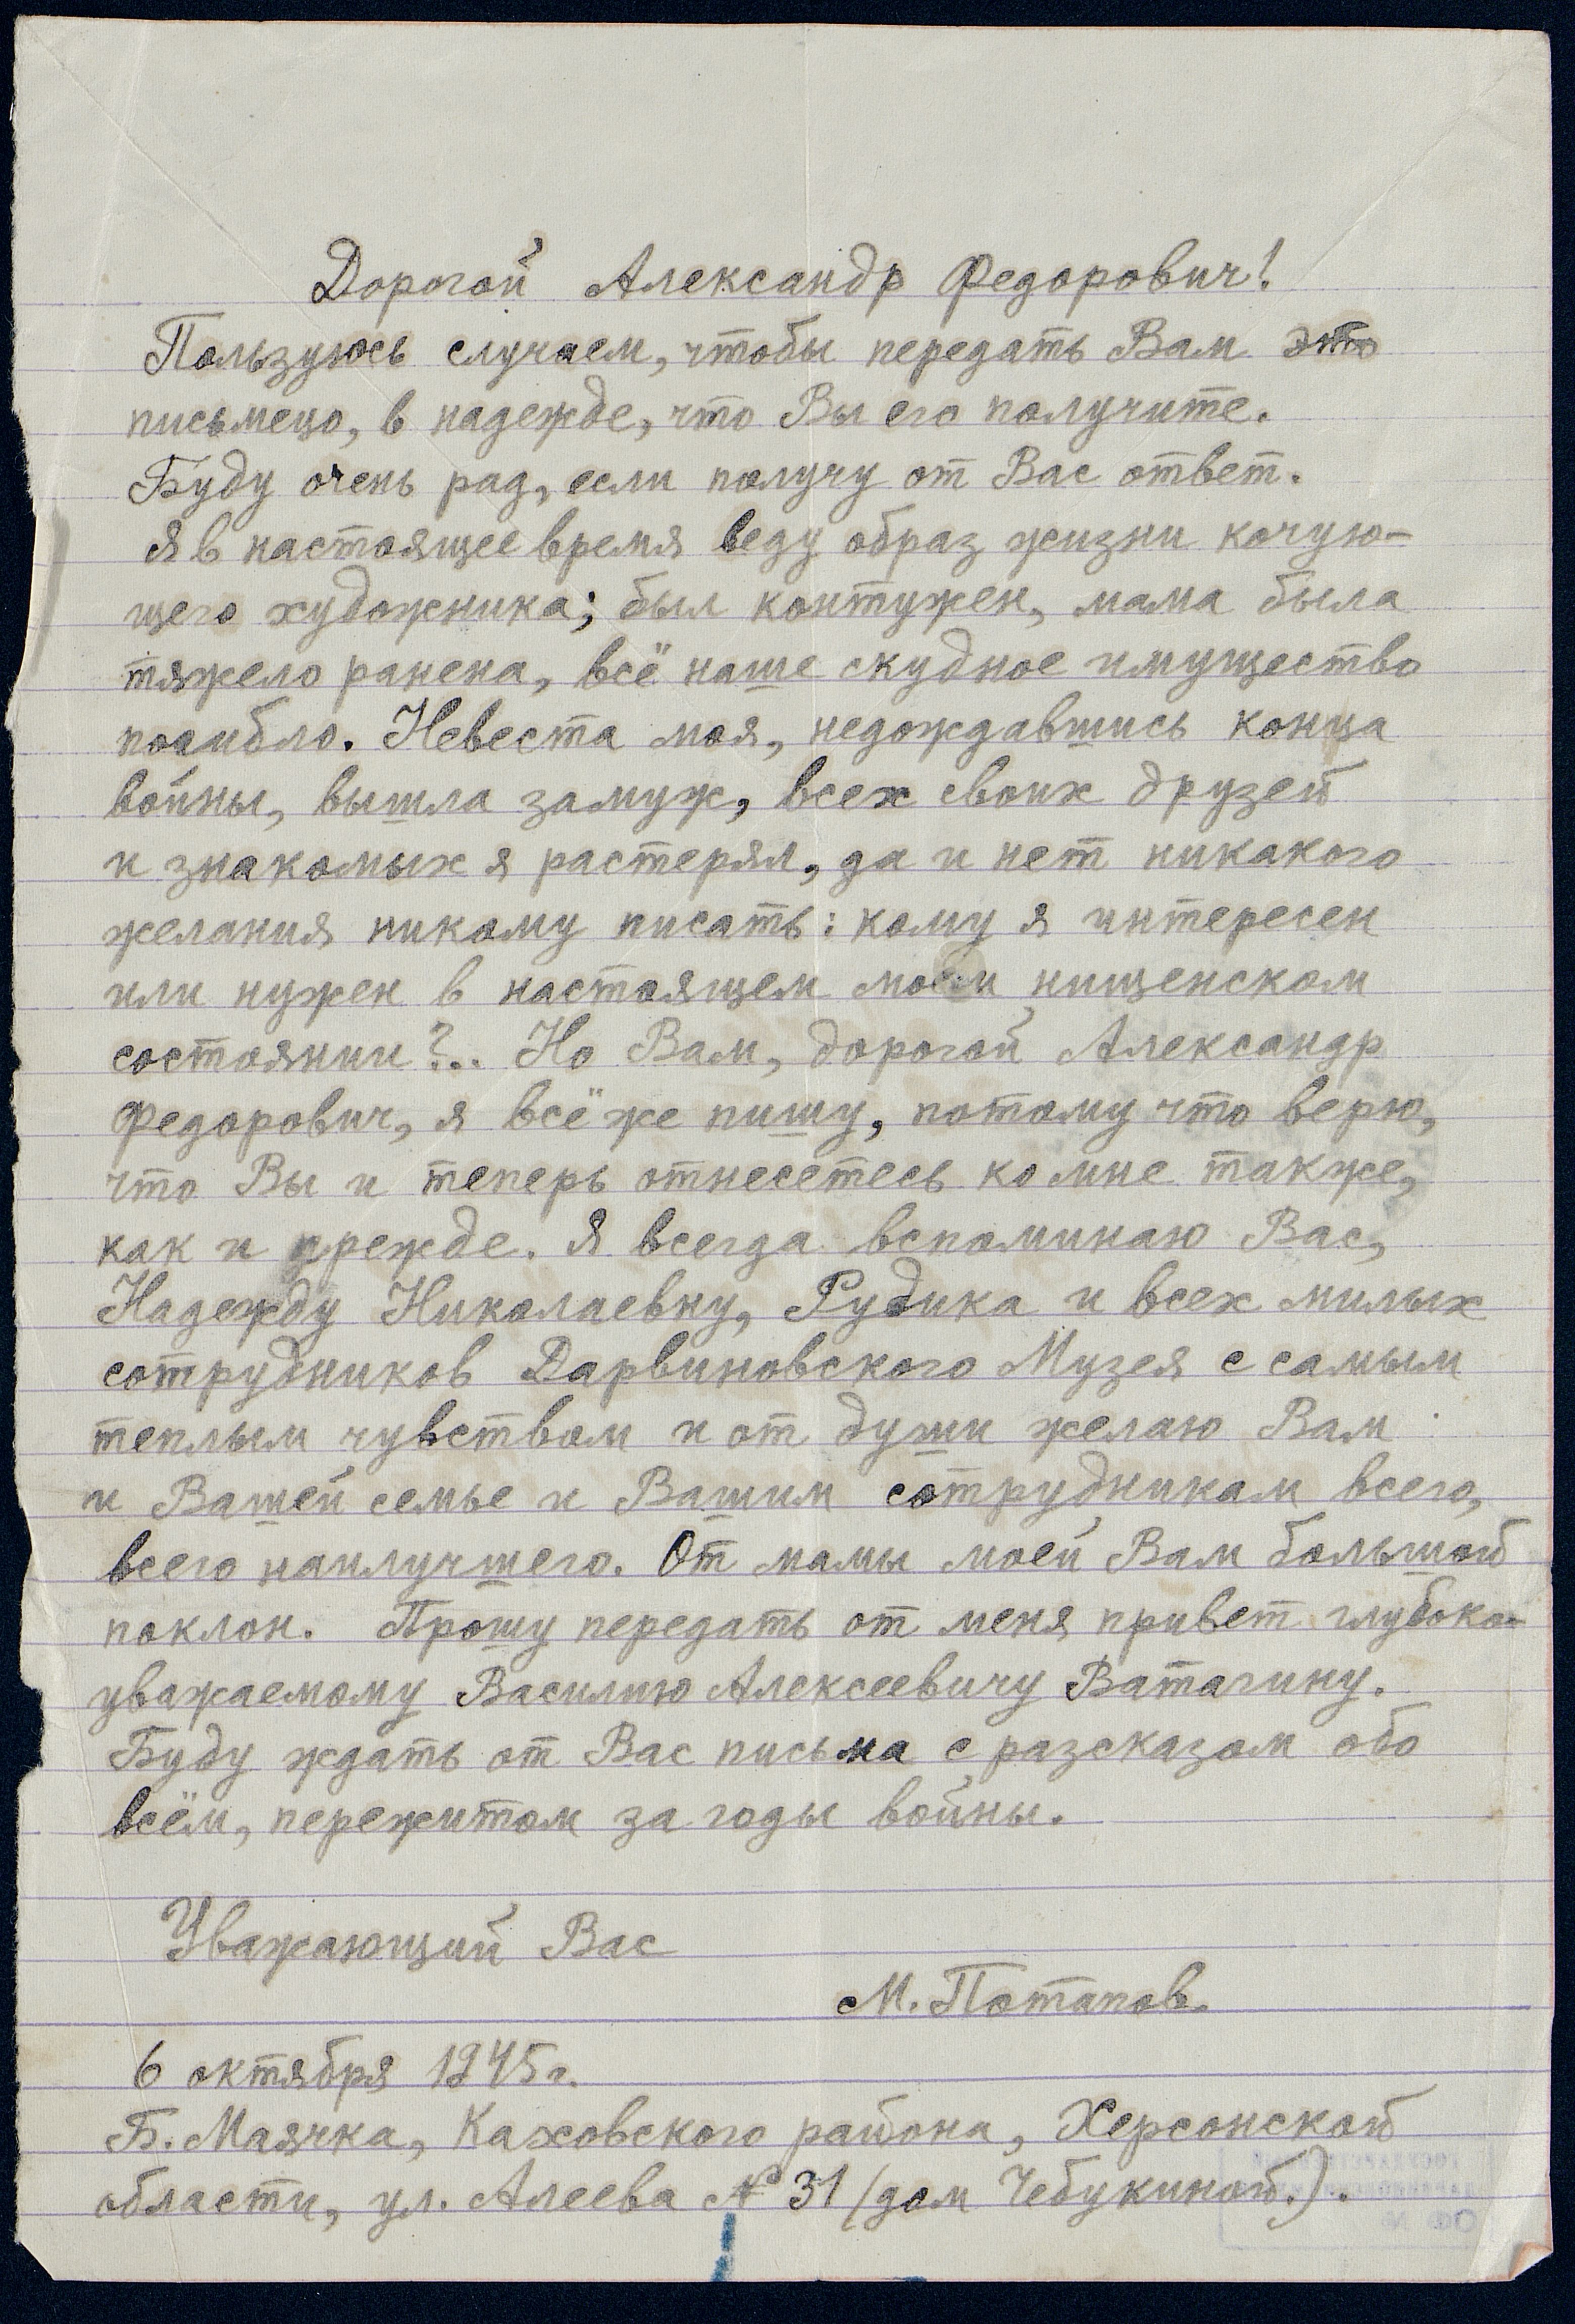 Дорогой Александр Федорович!
Пользуюсь случаем, чтобы передать Вам это
письмецо, в надежде, что Вы его получите.
Буду очень рад, если получу от Вас ответ.
Я в настоящее время веду образ жизни кочую-
щего художника; был контужен, мама была
тяжело ранена, всё наше скудное имущество
погибло. Невеста моя, недождавшись конца
войны, вышла замуж, всех своих друзей
и знакомых я растерял, да и нет никакого
желания никому писать: кому я интересен
или нужен в настоящем моем нищенском
состоянии?.. Но Вам, дорогой Александр
Федорович, я всё же пишу, потому что верю,
что Вы и теперь отнесетесь ко мне также,
как и прежде. Я всегда вспоминаю Вас,
Надежду Николаевну, Рудика и всех милых
сотрудников Дарвиновского Музея с самым
теплым чувством и от души желаю Вам
и Вашей семье и Вашим сотрудникам всего,
всего наилучшего. От мамы моей Вам большой
поклон. Прошу передать от меня привет глубоко-
уважаемому Василию Алексеевичу Ватагину.
Буду ждать от Вас письма с разсказом обо
всём, пережитом за годы войны.
Уважающий Вас
М. Потапов.
6 октября 1945 г.
Б. Маячка, Каховского района, Херсонской
области, ул. Алеева № 31 (дом Чебукиной.).